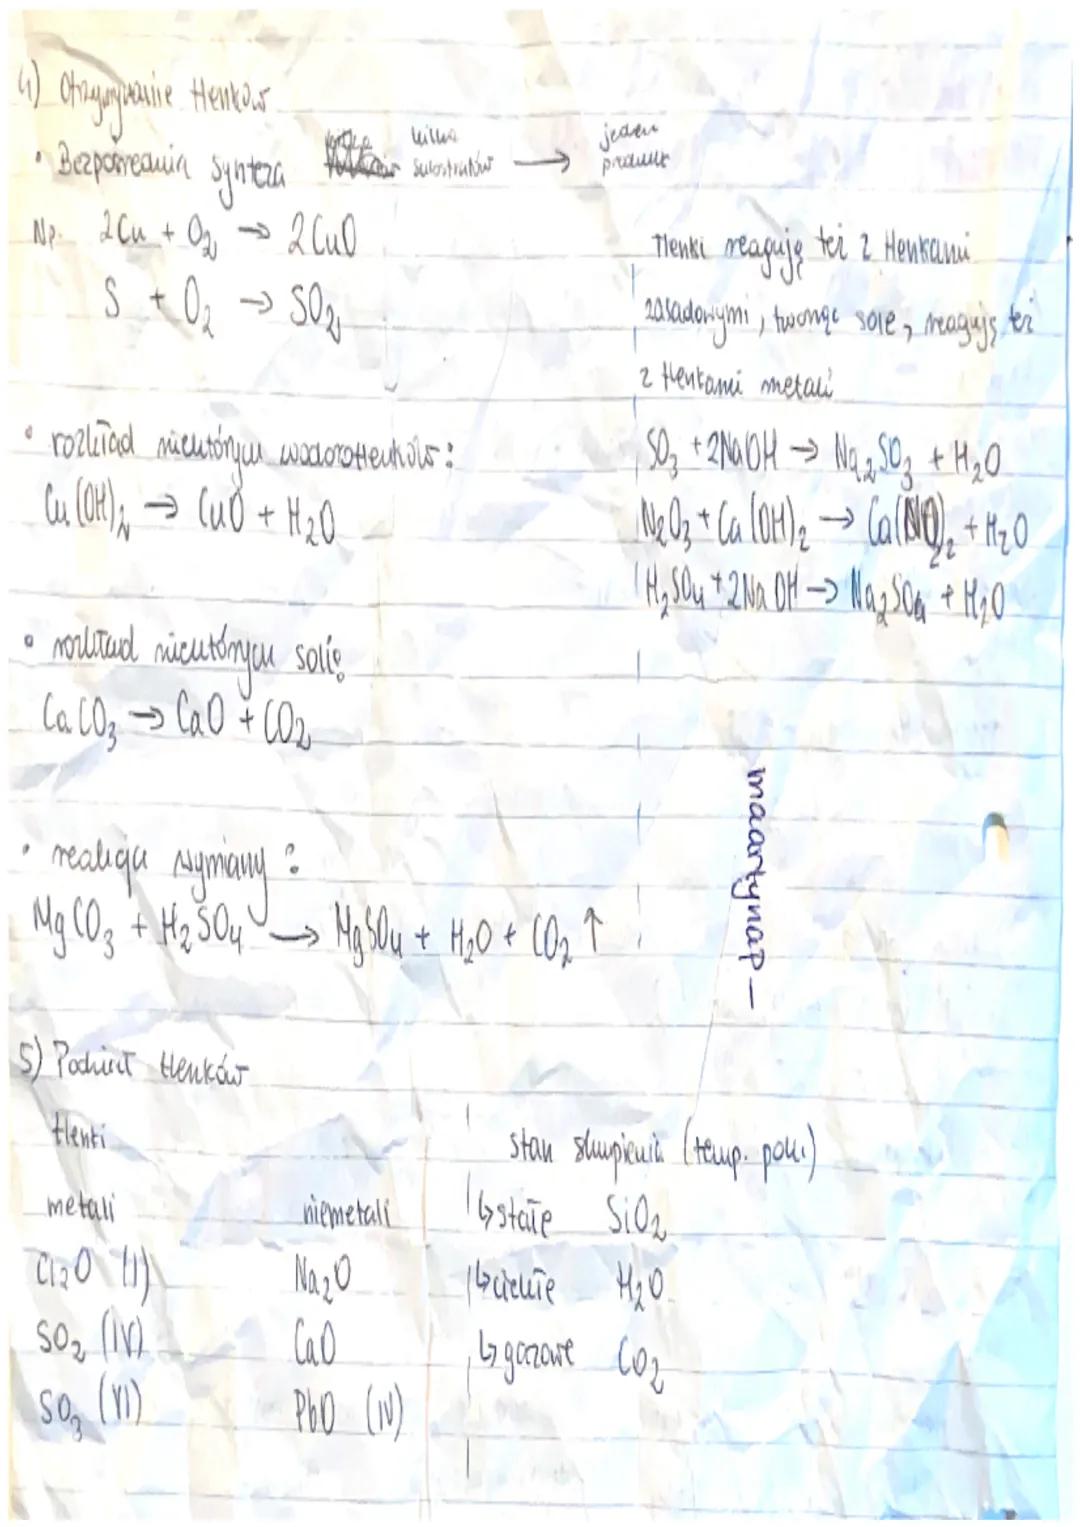 4) Otrzymywanie tlenków
• Bezpośrednia synteza kilka substratów → jeden produkt
Np. 2Cu + O₂ → 2CuO
S + O₂ → SO₂
• rozkład niektórych wodorotlenków:
Cu(OH)₂ → CuO + H₂O
• rozkład niektórych soli:
CaCO₃ → CaO + CO₂
• reakcja wymiany:
MgCO₃ + H₂SO₄ → MgSO₄ + H₂O + CO₂ ↑
Tlenki reagują też z tlenkami
zasadowymi, tworząc sole, reagują też
z tlenkami metali
SO₂ + 2NaOH → Na₂SO₃ + H₂O
N₂O₃ + Ca(OH)₂ → Ca(NO₂)₂ + H₂O
H₂SO₄ + 2NaOH → Na₂SO₄ + H₂O
maartynap —
5) Podział tlenków
tlenki
metali niemetali
Cl₂O (I) Na₂O
SO₂ (IV) CaO
SO₃ (VI) PbO (IV)
stan skupienia (temp. pok.)
↳ stałe SiO₂
↳ ciekłe H₂O
↳ gazowe CO₂